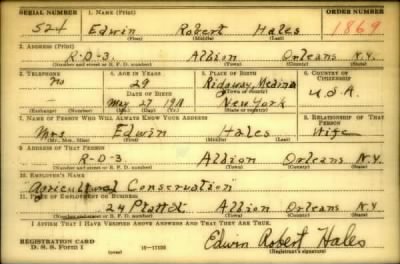 SERIAL NUMBER 1. NAME (Print) ORDER NUMBER
524 Edwin Robert Hales 1869
(First) (Middle) (Last)
2. ADDRESS (Print)
R-D-3. Albion Orleans N.Y.
(Number and street or R. F. D. number) (Town) (County) (State)
3. TELEPHONE 4. AGE IN YEARS 5. PLACE OF BIRTH 6. COUNTRY OF CITIZENSHIP
No 29 Ridgway, Medina
DATE OF BIRTH (Town or county)
May 27 1911 New York U.S.A.
(Exchange) (Number) (Mo.) (Day) (Yr.) (State or country)
7. NAME OF PERSON WHO WILL ALWAYS KNOW YOUR ADDRESS 8. RELATIONSHIP OF THAT PERSON
Mrs Edwin Hales Wife
(Mr., Mrs., Miss) (First) (Middle) (Last)
9. ADDRESS OF THAT PERSON
R-D-3. Albion Orleans N.Y.
(Number and street or R. F. D. number) (Town) (County) (State)
10. EMPLOYER'S NAME
Agricultural Conservation
11. PLACE OF EMPLOYMENT OR BUSINESS
24 Platt St Albion Orleans N.Y.
(Number and street or R. F. D. number) (Town) (County) (State)
I AFFIRM THAT I HAVE VERIFIED ABOVE ANSWERS AND THAT THEY ARE TRUE.
REGISTRATION CARD
D. S. S. FORM 1 16-17105 Edwin Robert Hales
(Registrant's signature)